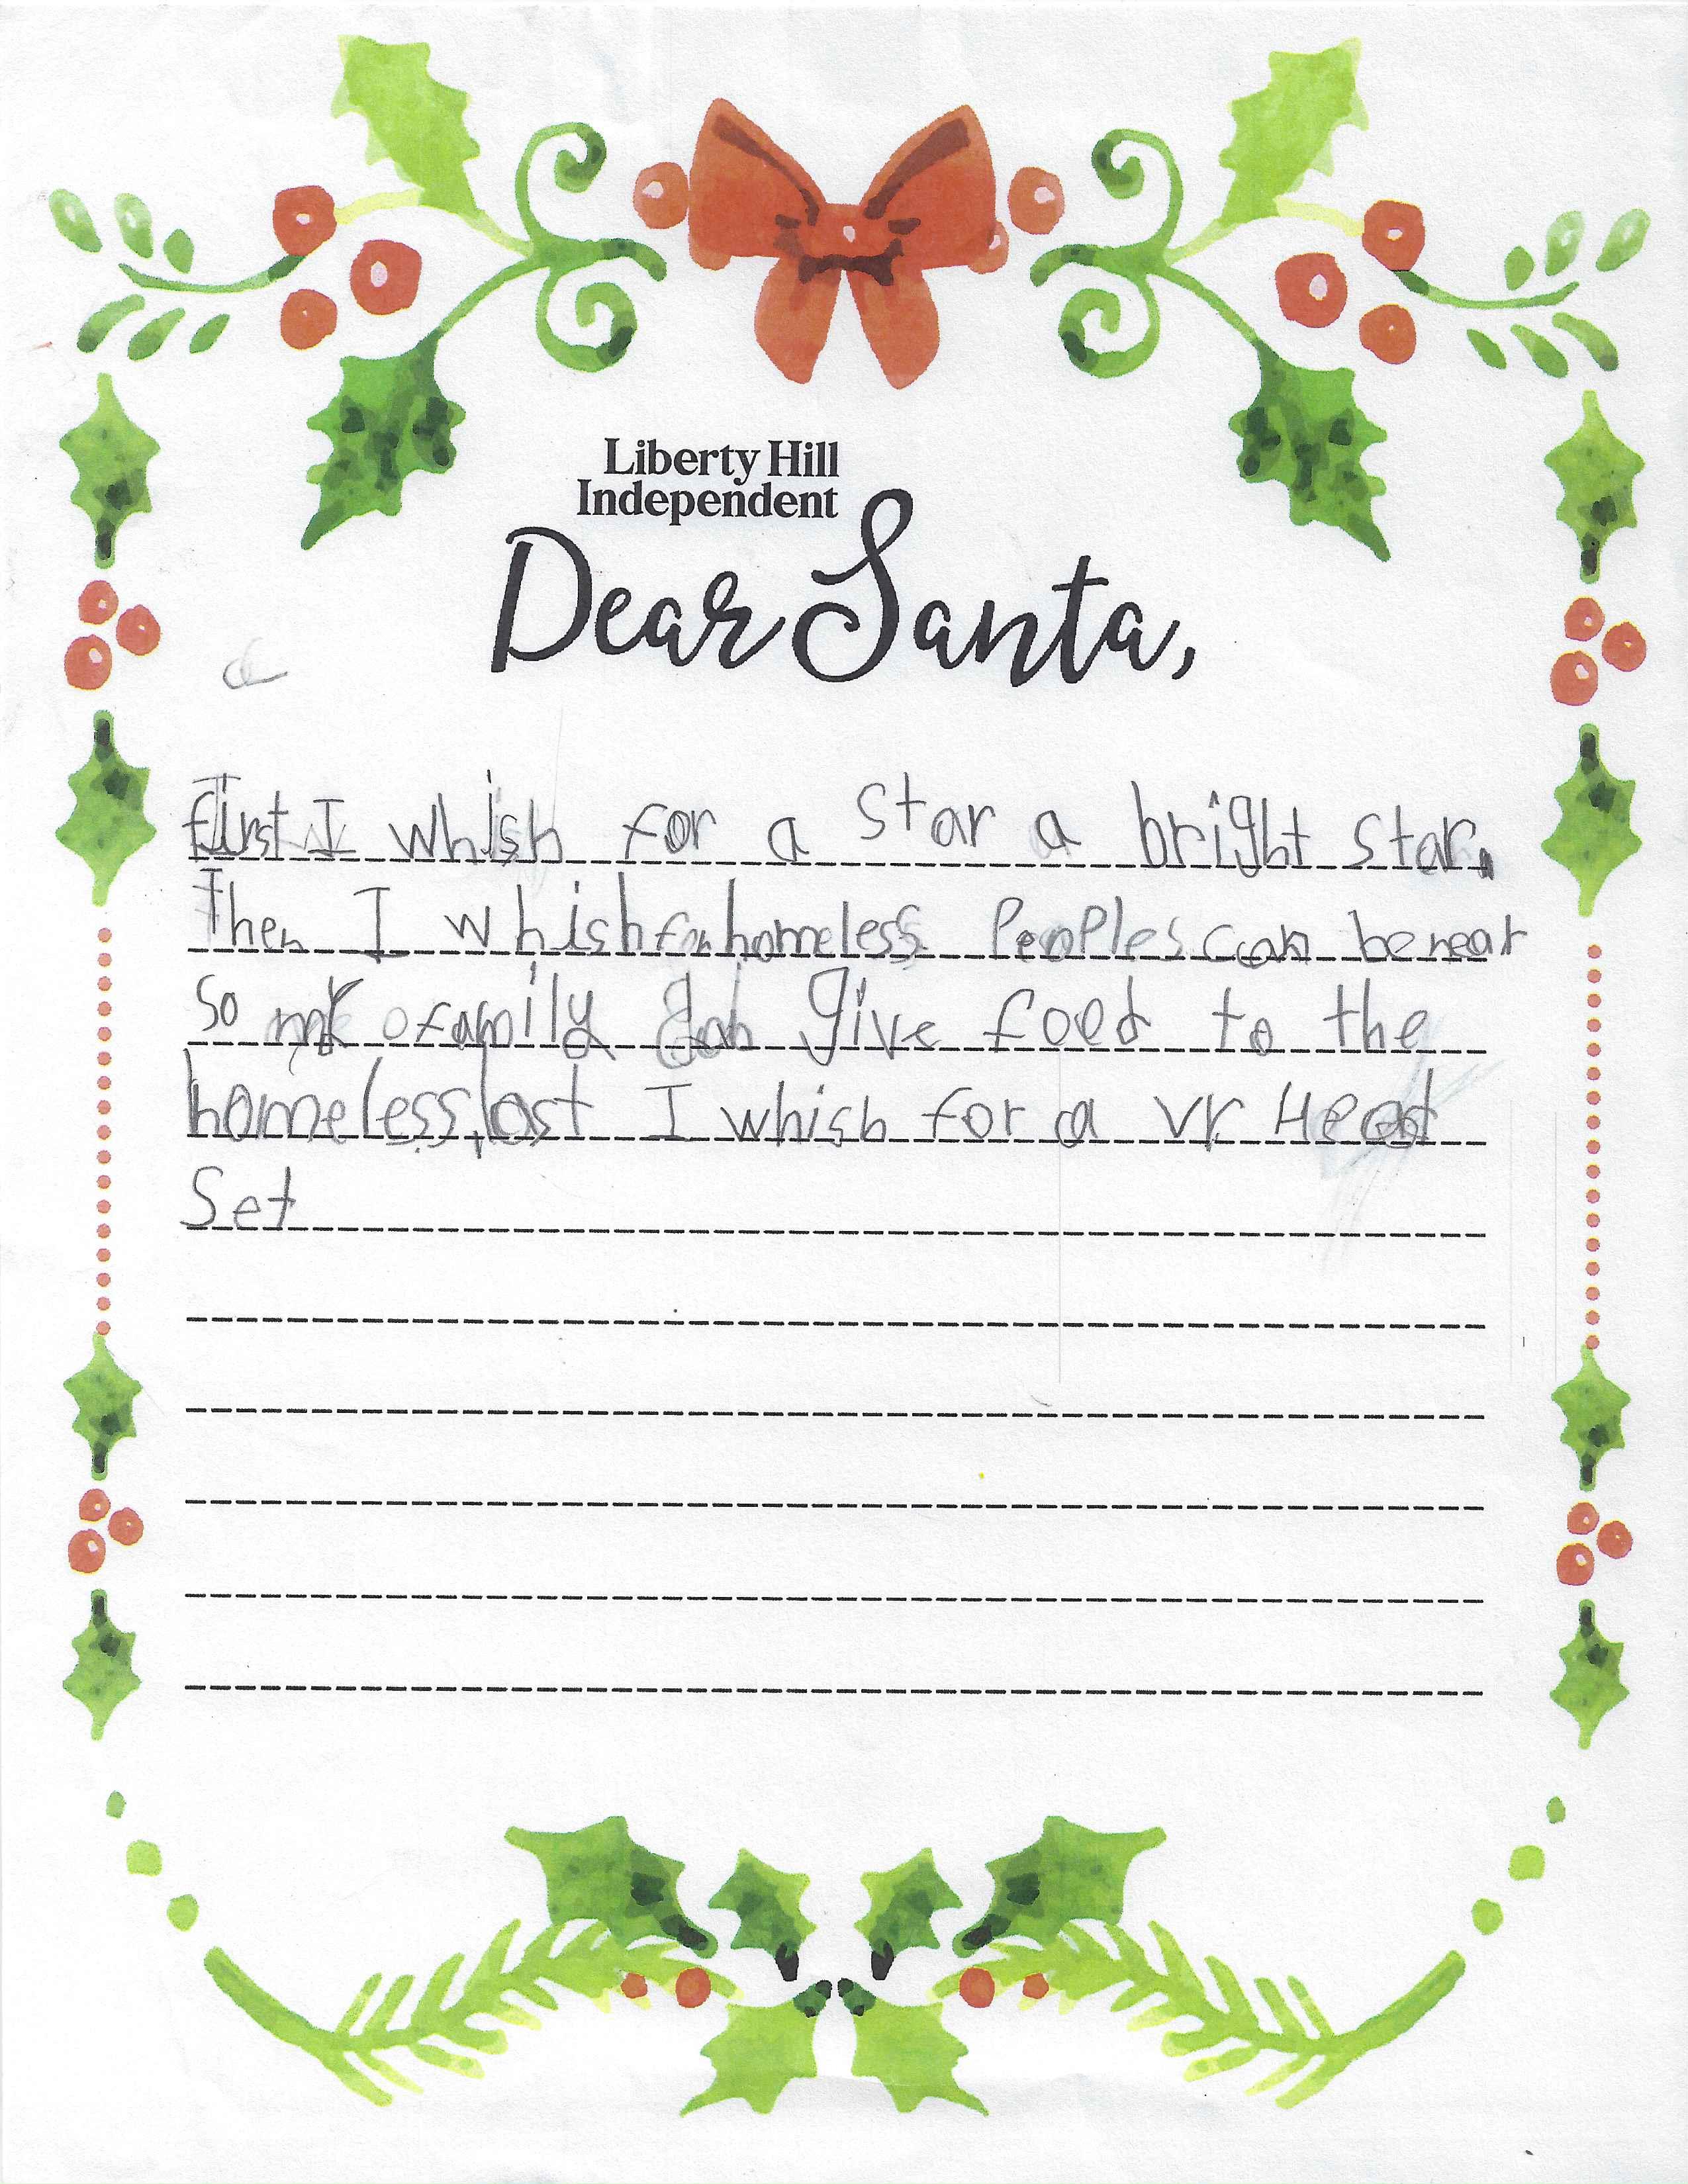 Liberty Hill
Independent
Dear Santa,
first I whish for a star a bright star.
Then I whish for homeless Peoples can be near
So my family can give food to the
homeless, last I whish for a vr Head
Set